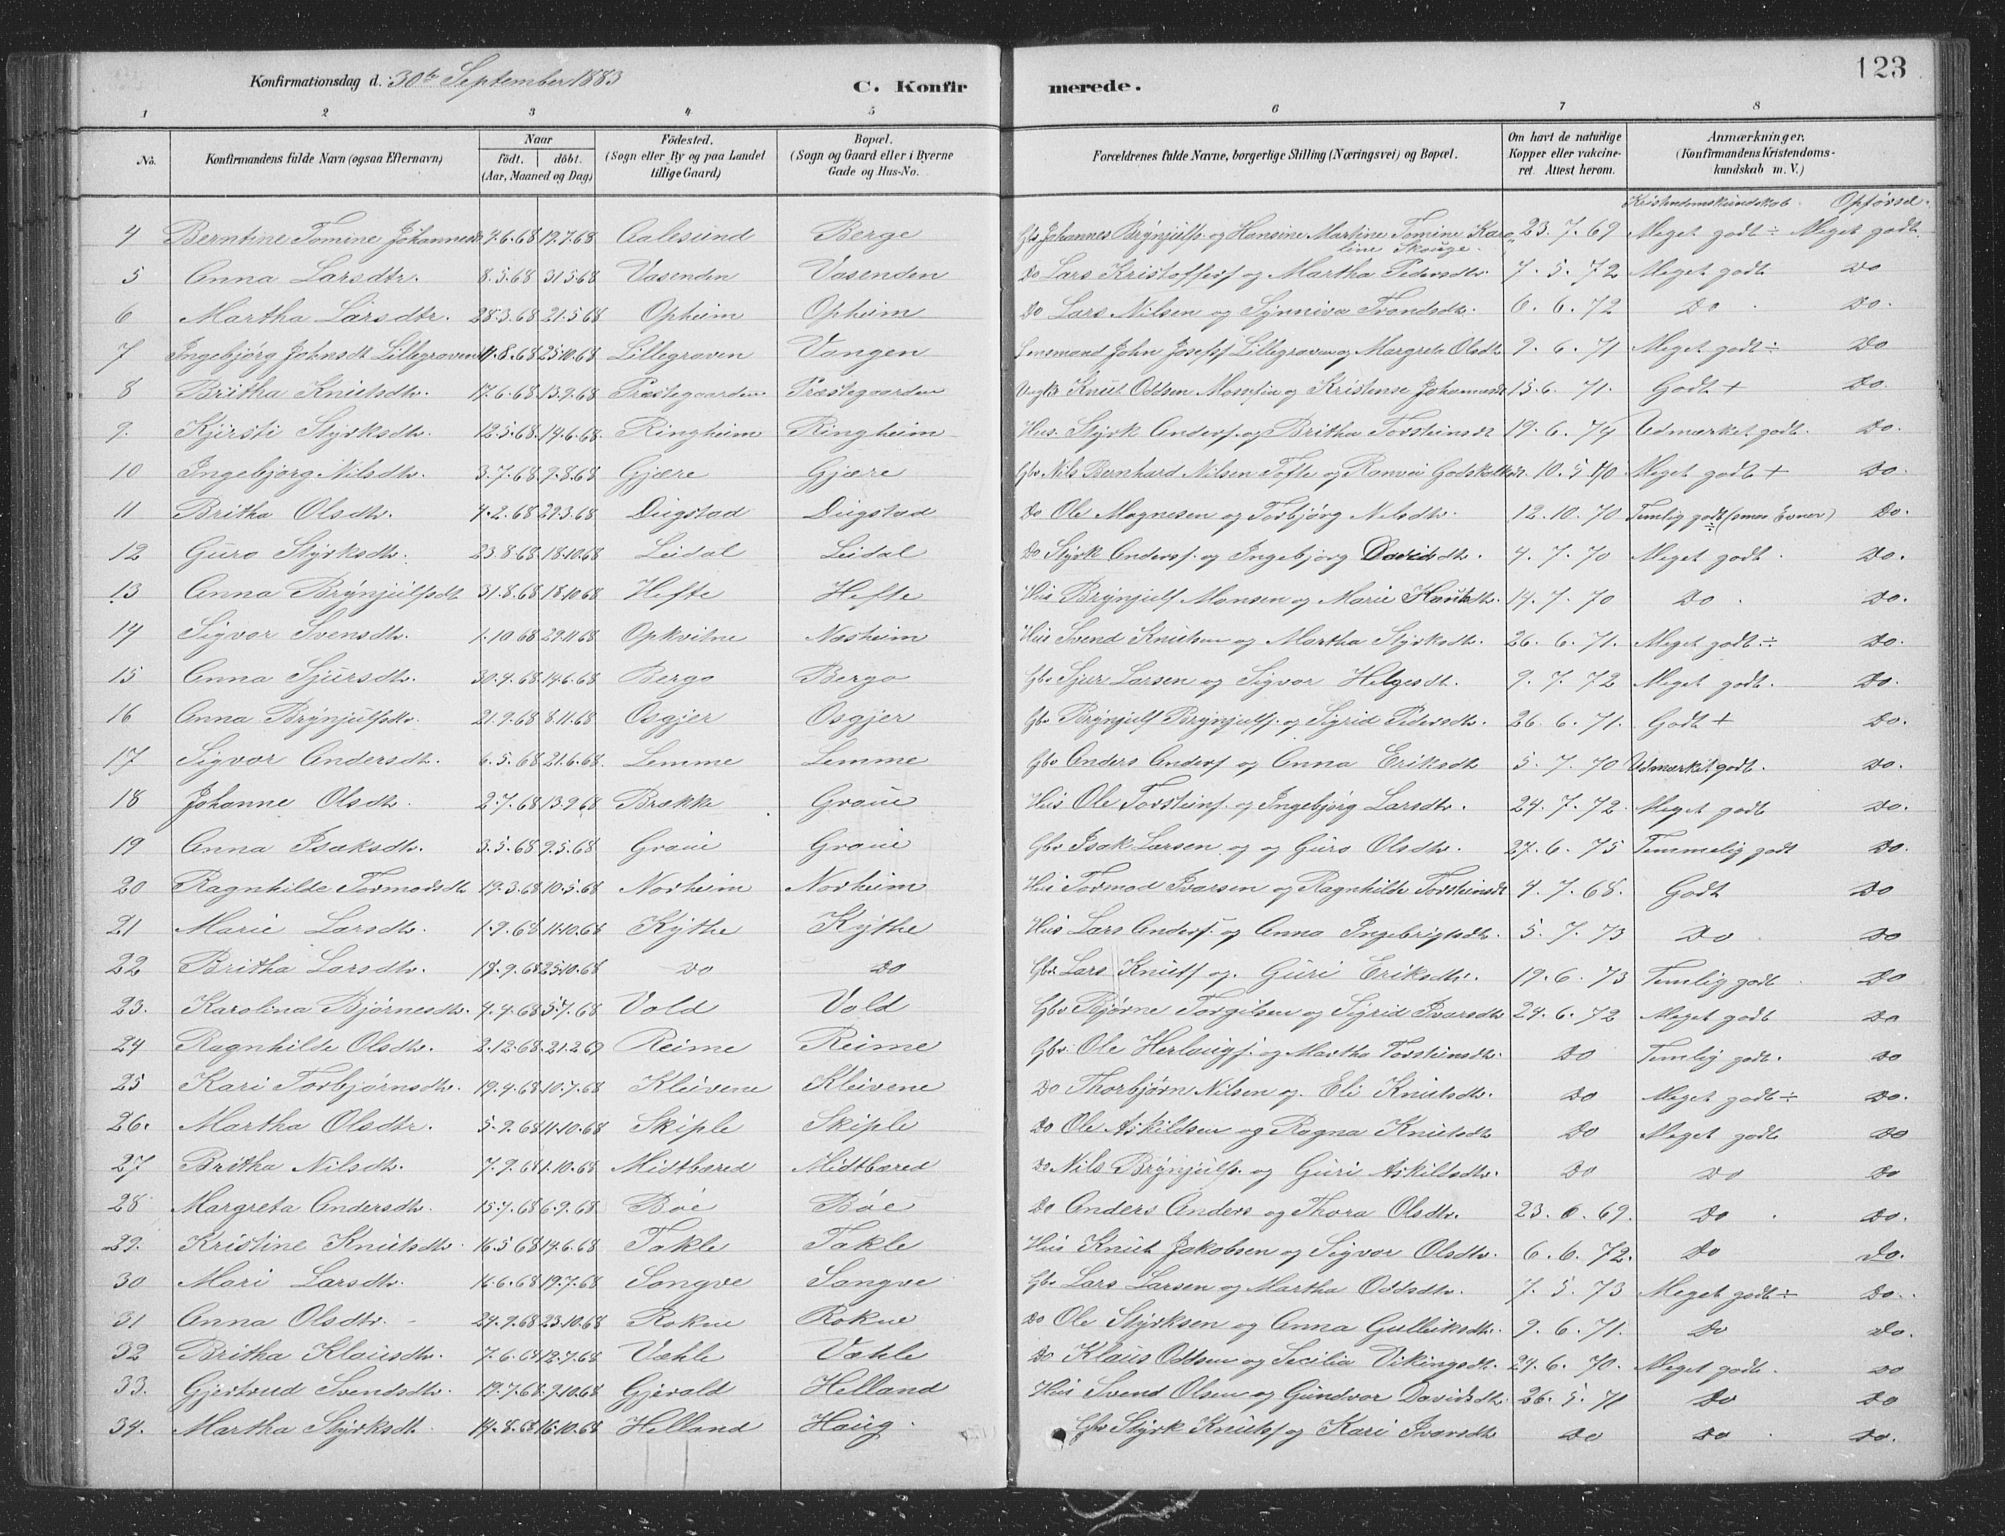 123
Konfirmationsdag d. 30te September 1883
C. Konfirmerede.
1 2 3 4 5 6 7 8
No. Konfirmandens fulde Navn (ogsaa Efternavn) Naar födt. döbt. (Aar, Maaned og Dag) Födested. (Sogn eller By og paa Landet tillige Gaard) Bopæl. (Sogn og Gaard eller i Byerne Gade og Hus-No. Forældrenes fulde Navne, borgerlige Stilling (Næringsvei) og Bopæl. Om havt de naturlige Kopper eller vaccineret. Attest herom. Anmærkninger. (Konfirmandens Kristendomskundskab m. V.)
Kristendomskundskab. Opførsel.
4 Berntine Tomine Johannesdt 12.7.68 Aalesund Berge Gbr Johannes Brynjulfs. og Hansine Martine Tomine Karoline Skouge. 23.7.69 Meget godt ÷ Meget godt.
5 Anna Larsdtr. 8.5.68 31.5.68 Vasenden Vasenden Do Lars Kristoffers. og Martha Pedersdtr. 7.5.72 Meget godt Do
6 Martha Larsdtr. 28.3.68 21.5.68 Opheim Opheim Do Lars Nilsen og Synniva Trondsdtr. 6.6.72 Do Do.
7 Ingebjørg Johnsdt Lillegraven 25.10.68 Lillegraven Vangen Lensmand John Josefs. Lillegraven og Margreta Olsdtr 9.6.71 Meget godt ÷ Do
8 Britha Knutsdtr. 17.6.68 13.9.68 Præstegaarden Præstegaarden Knut Oddsen og Kristense Johannesdt 15.6.71. Godt + Do.
9. Kjersti Styrksdtr. 12.5.68 14.6.68. Ringheim Ringheim Hus. Styrk Anders. og Britha Torsteinsdt 19.6.74 Udmærket godt. Do.
10 Ingebjørg Nilsdtr. 3.7.68 9.8.68 Gjære Gjære Gbr Nils Bernhard Nilsen Tofte og Ranvei Godskalksdt. 10.5.70 Meget godt + Do.
11 Britha Olsdtr. 4.2.68 29.3.68 Dugstad Dugstad Do Ole Magnesen og Torbjørg Nilsdtr. 12.10.70 Temlig godt (smaa Evner) Do.
12 Guro Styrksdtr. 23.8.68 18.10.68 Leidal Leidal Do Styrk Anders. og Ingebjørg Davidsdtr. 4.7.70 Meget godt. Do.
13 Anna Brynjulfsdt 31.8.68 18.10.68 Hefte Hefte Hus Brynjulf Monsen og Marie Knutsdtr. 14.7.70 Do. Do.
14 Sigvor Svensdtr. 1.10.68 29.11.68 Opkvitne Næsheim Hus Svend Knutsen og Martha Styrksdtr. 26.6.71. Meget godt ÷ Do.
15 Anna Sjursdtr. 30.4.68 14.6.68 Bergo Bergo Gbr Sjur Larsen og Sigvor Helgesdt. 9.7.72 Meget godt. Do.
16 Anna Brynjulfsdtr. 21.9.68 8.11.68 Osgjer Osgjer Gbr Brynjulf Brynjulfs. og Sigrid Pedersdtr. 26.6.71. Godt + Do.
17 Sigvor Andersdtr. 6.5.68 21.6.68. Lemme Lemme Gbr Anders Anders. og Anna Eriksdtr 5.7.70 Udmærket godt. Do.
18 Johanne Olsdtr. 2.7.68 13.9.68 Brekke Graue Hus Ole Torsteins. og Ingebjørg Larsdtr. 24.7.72. Meget godt Do.
19 Anna Isaksdtr. 3.5.68 9.5.68 Graue Graue Gbr Isak Larsen og og Guro Olsdtr. 27.6.75 Temmelig godt Do.
20 Ragnhilde Tormodsdtr 19.3.68 10.5.68 Norheim Norheim Hus Tormod Ivarsen og Ragnhilde Torsteinsdt 4.7.68. Godt Do
21 Marie Larsdtr. 1.9.68 11.10.68 Kythe Kythe Hus Lars Anders. og Anna Ingebrigtsdtr. 5.7.73 Do Do
22 Britha Larsdtr. 25.10.68 Do Do Gbr Lars Knuts. og Guri Eriksdtr. 19.6.73 Temlig godt. Do
23. Karolina Bjørnesdtr. 4.4.68 5.7.68 Vold Vold Gbr Bjørne Torgilsen og Sigrid Ivarsdtr 29.6.72 Meget godt Do
24 Ragnhilde Olsdtr. 2.12.68. 21.2.69 Reime Reime Gbr Ole Herlaugs. og Martha Torsteinsdtr. Do Temlig godt. Do
25 Kari Torbjørnsdtr. 19.4.68 10.7.68 Kleivene Kleivene Do Thorbjørn Nilsen og Eli Knutsdtr. Do Meget godt ÷ Do.
26. Martha Olsdtr. 5.9.68 11.10.68 Skiple Skiple Do Ole Askildsen og Ragna Knutsdtr Do Meget godt Do
27 Britha Nilsdtr. 7.9.68 1.10.68 Midtbæred Midtbæred Do Nils Brynjulfs. og Guri Askildsdtr. Do Do Do
28 Margreta Andersdtr. 15.7.68 6.9.68 Böe Böe Do Anders Anders og Thora Olsdtr. 23.6.69. Do. Do.
29. Kristine Knutsdtr. 16.5.68 14.6.68 Takle Takle Hus Knut Jakobsen og Sigvor Olsdtr. 6.6.72. Do Do.
30 Mari Larsdtr. 14.6.68 19.7.68 Sangve Sangve Gbr Lars Larsen og Martha Oddsdtr. 7.5.73 Meget godt ÷ Do.
31 Anna Olsdtr. 24.9.68 23.10.68 Rokne Rokne Do Ole Styrksen og Anna Gulleiksdtr. 9.6.71. Do Do.
32 Britha Klausdtr. 7.6.68 12.7.68 Væhle Væhle Do Klaus Oddsen og Secilia Vikingsdt. 24.6.70. Meget godt. Do
33. Gjertrud Svendsdtr. 19.7.68. 9.10.68 Gjerald Helland Hus Svend Olsen og Gundvor Davidsdtr. 26.5.71 Do Do
34. Martha Styrksdt. 14.8.68 16.10.68 Helland Haug. Gbr Styrk Knuts. og Kari Ivarsdtr Do Do. Do.